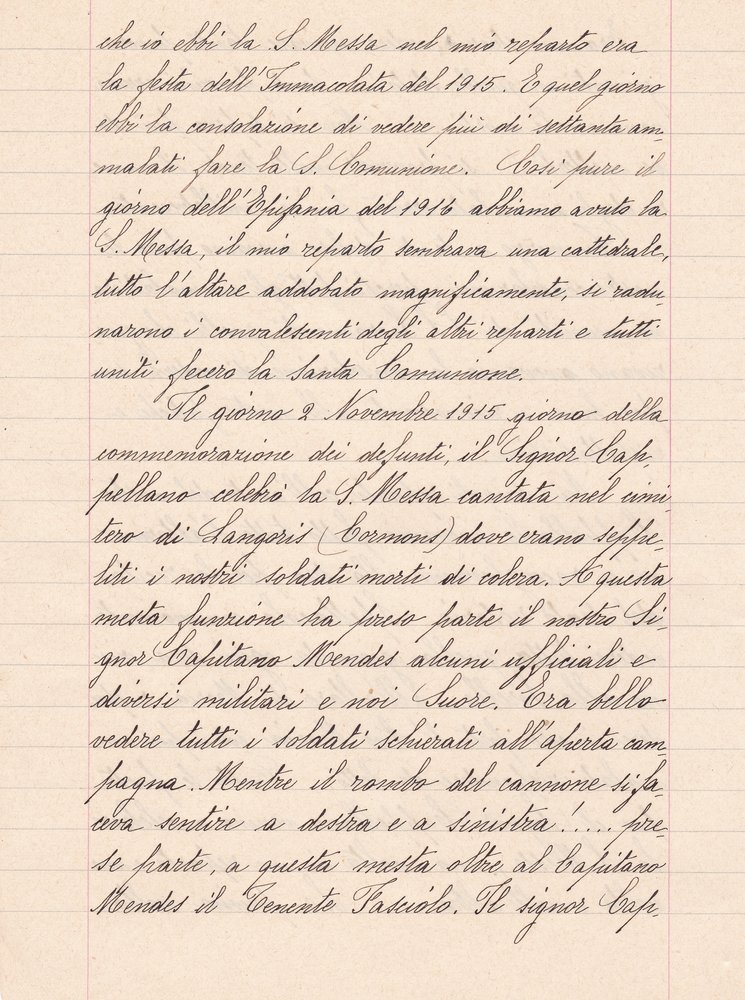 che io ebbi la S. Messa nel mio reparto era
la festa dell'Immacolata del 1915. E quel giorno
ebbi la consolazione di vedere più di settanta am-
malati fare la S. Comunione. Così pure il
giorno dell'Epifania del 1916 abbiamo avuto la
S. Messa, il mio reparto sembrava una cattedrale,
tutto l'altare addobato magnificamente, si radu-
narono i convalescenti degli altri reparti e tutti
uniti fecero la Santa Comunione.
Il giorno 2 Novembre 1915 giorno della
commemorazione dei defunti, il Signor Cap-
pellano celebrò la S. Messa cantata nel cimi-
tero di Langoris (Cormons) dove erano seppe-
liti i nostri soldati morti di colera. A questa
mesta funzione ha preso parte il nostro Si-
gnor Capitano Mendes alcuni ufficiali e
diversi militari e noi Suore. Era bello
vedere tutti i soldati schierati all'aperta cam-
pagna. Mentre il rombo del cannone si fa-
ceva sentire a destra e a sinistra!..... pre-
se parte, a questa mesta oltre al Capitano
Mendes il Tenente Fasciólo. Il signor Cap-